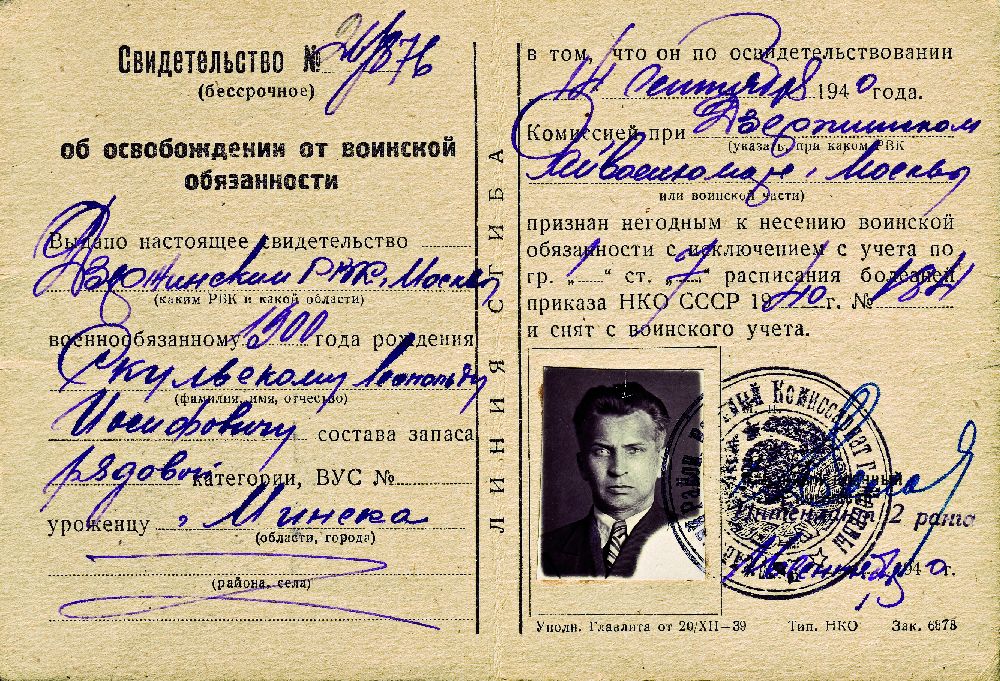 Свидетельство №
(бессрочное)
об освобождении от воинской
обязанности
Выдано настоящее свидетельство
Дзержинским РВК, Москвы
(каким РВК и какой области)
военнообязанному 1900 года рождения
Скульскому Леопольду
(фамилия, имя, отчество)
Иосифовичу состава запаса
рядовой категории, ВУС №
уроженцу г. Минска
(области, города)
(района, села)
ЛИНИЯ СГИБА
в том, что он по освидетельствовании
14 сентября 1940 года.
Комиссией при Дзержинском
(указать, при каком РВК
Райвоенкомате г. Москвы
или воинской части)
признан негодным к несению воинской
обязанности с исключением с учета по
гр. „1“ ст. „7“ расписания болезней
приказа НКО СССР 1940 г. № 184
и снят с воинского учета.
М. П.
Интендант 2 ранга
сентября 1940 г.
Уполн. Главлита от 20/XII—39 Тип. НКО Зак. 6878